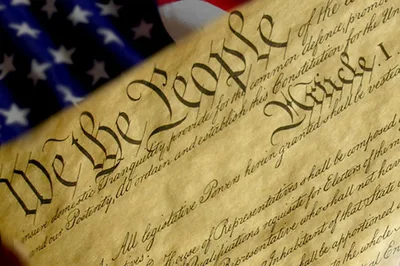 We the People of the
insure domestic Tranquility, provide for the common defence, promote
and our Posterity, do ordain and establish this Constitution for the
Article I
All legislative Powers herein granted shall be
House of Representatives shall be composed
Qualifications requisite for Electors of the
Representative who shall not have
Inhabitant of that State
shall be apportioned
the whole